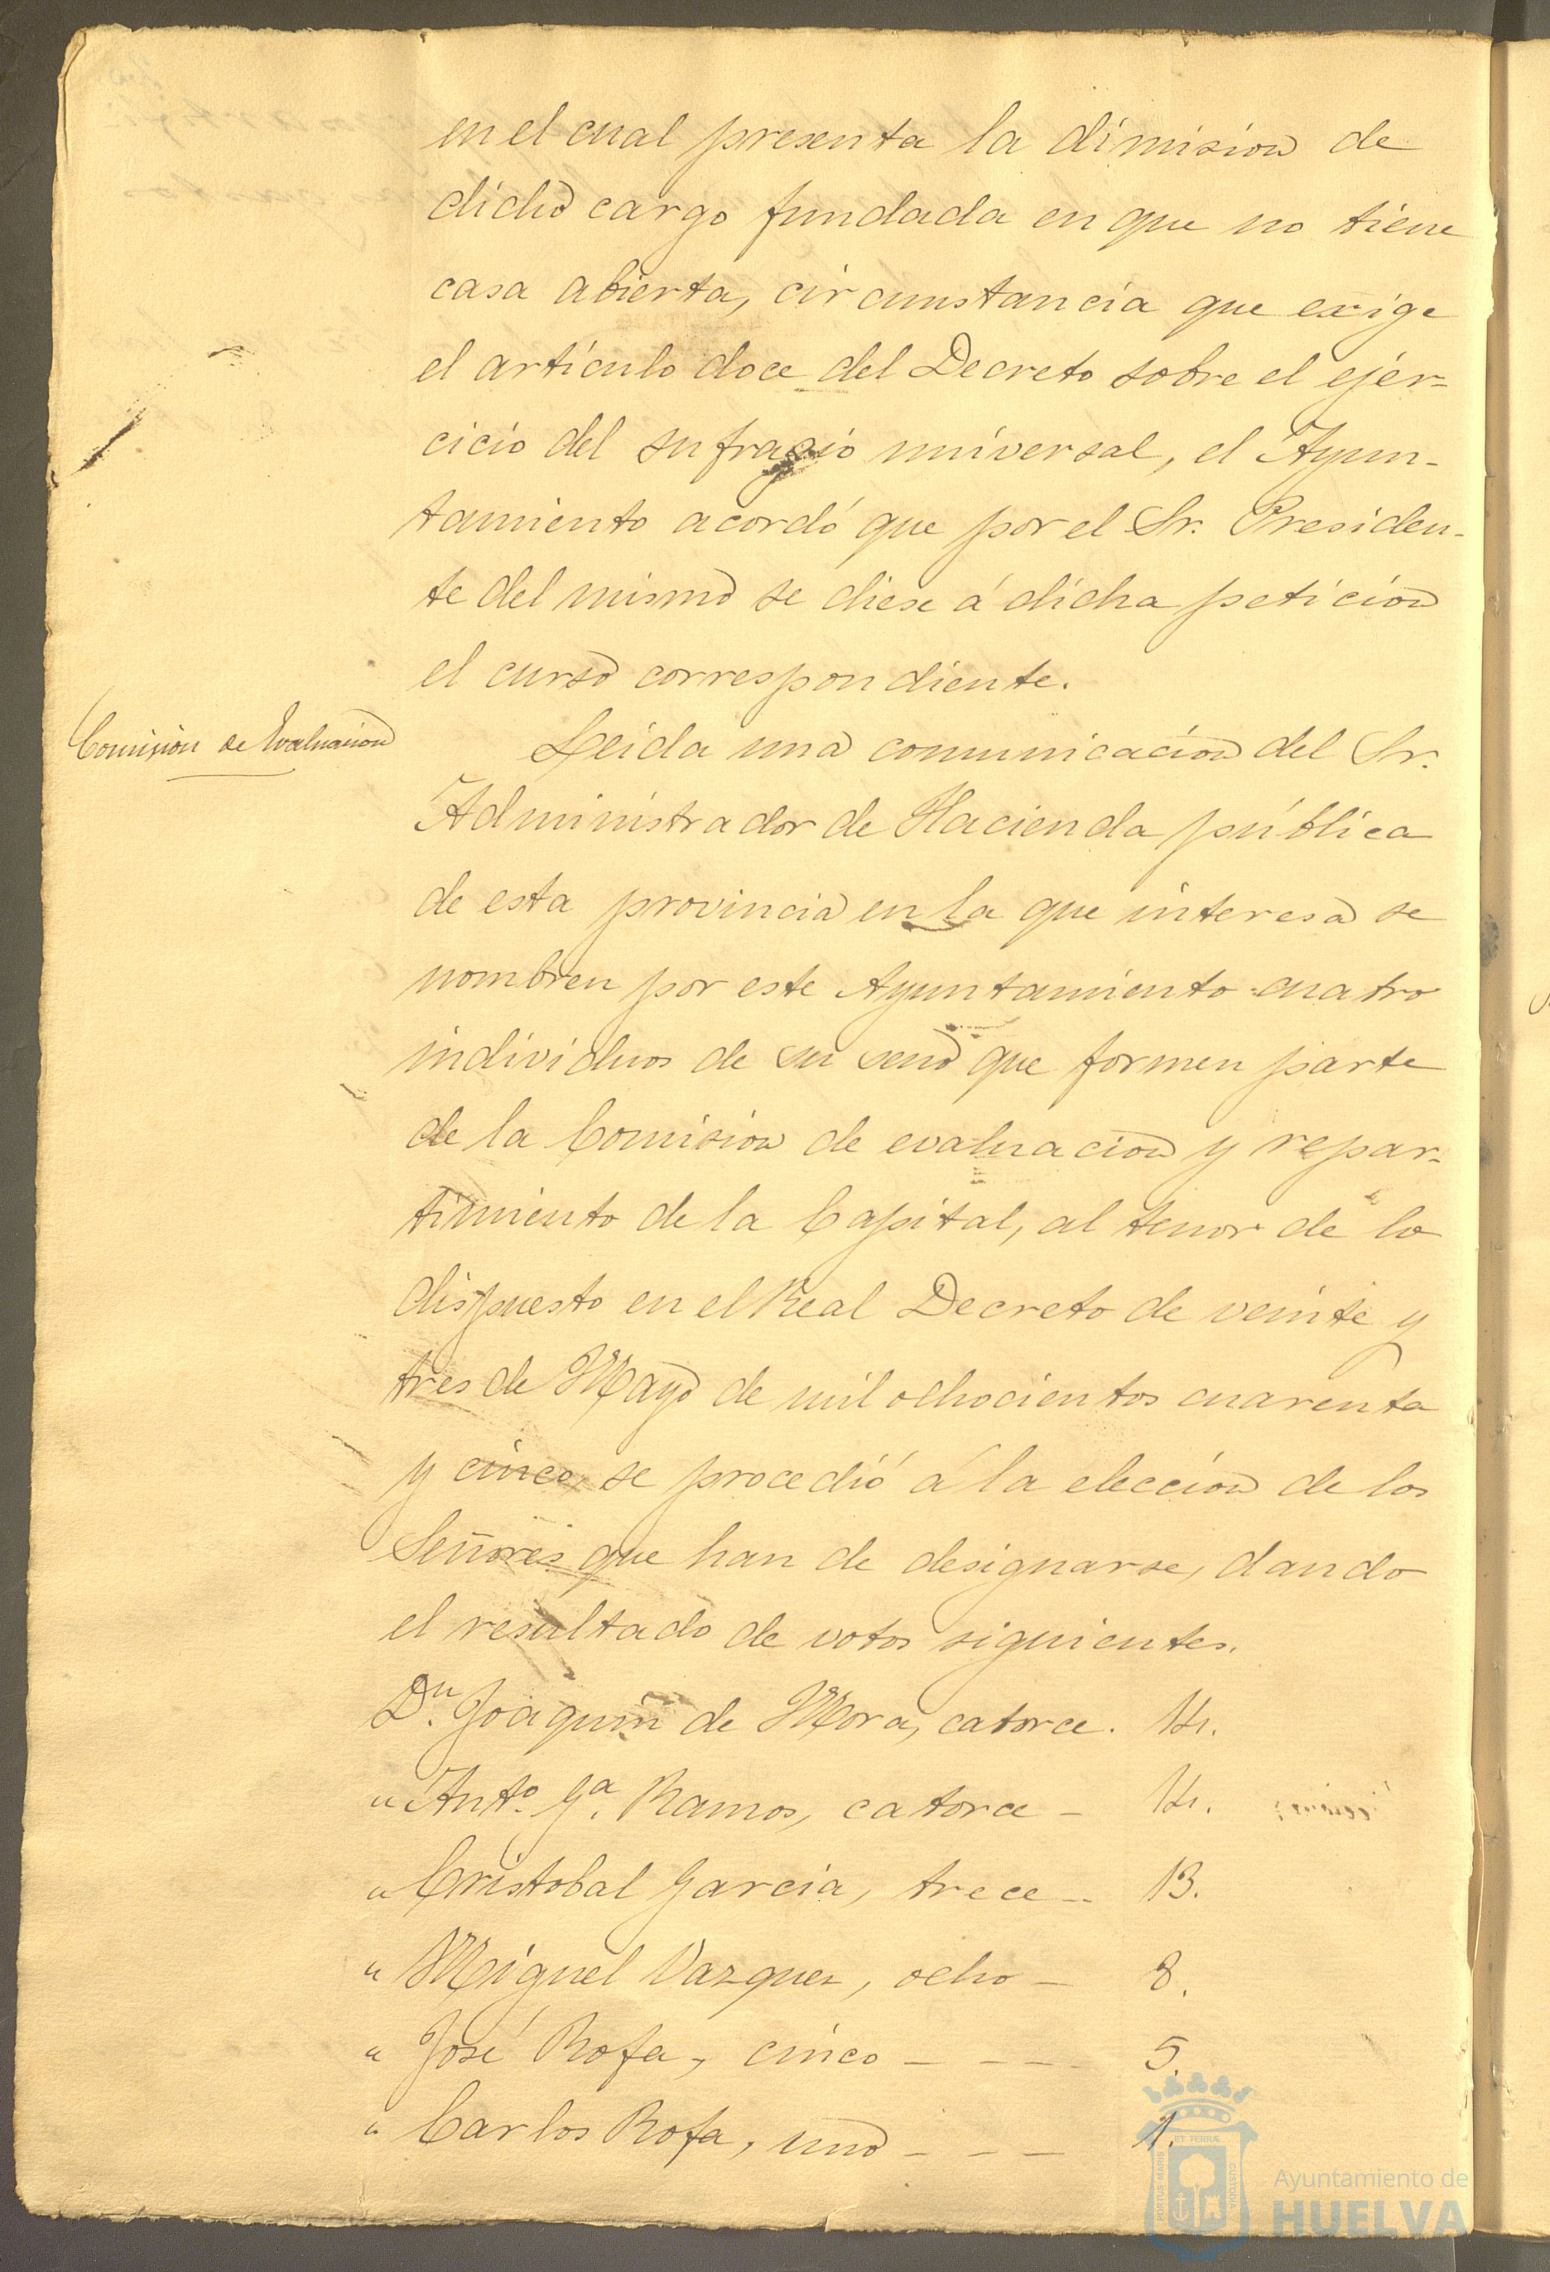 en el cual presenta la dimision de
dicho cargo fundada en que no tiene
casa abierta, circunstancia que exige
el artículo doce del Decreto sobre el ejer-
cicio del sufragio universal, el Ayun-
tamiento acordó que por el Sr. Presiden-
te del mismo se diese á dicha peticion
el curso correspondiente.
Comision de Evaluacion
Leida una comunicacion del Sr.
Administrador de Hacienda pública
de esta provincia en la que interesa se
nombren por este Ayuntamiento cuatro
individuos de su seno que formen parte
de la Comision de evaluacion y repar-
timiento de la Capital, al tenor de lo
dispuesto en el Real Decreto de veinte y
tres de Mayo de mil ochocientos cuarenta
y cinco, se procedió á la eleccion de los
Señores que han de designarse, dando
el resultado de votos siguientes.
Dn. Joaquin de Mora, catorce. 14.
" Anto. Ga. Ramos, catorce - 14.
" Cristobal Garcia, trece - 13.
" Miguel Vazquez, ocho - 8.
" José Rofa, cinco - - - 5.
" Carlos Rofa, uno - - - 1.
PORTUS MARIS
ET TERRÆ
CUSTODIA
Ayuntamiento de
HUELVA